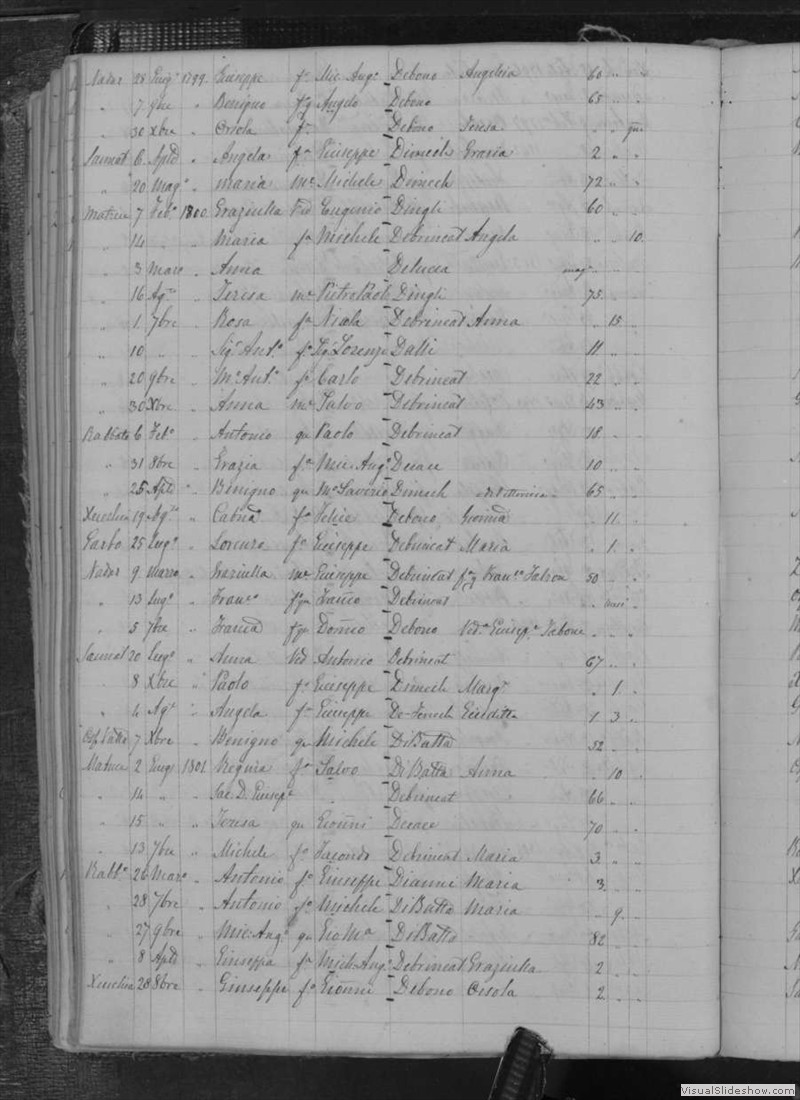 Nadur 28 Giug.o 1799. Giuseppe f.o Mic. Ang.o Debono Angelica 60 " "
" 7 9bre " Benigno f.q Angelo Debono 65 " "
" 30 Xbre " Orsola f.a Debono Teresa " "
Sannat 6 Aple " Angela f.a Giuseppe Dimech Grazia 2 " "
" 20 Mag.o " Maria m.e Michele Dimech 72 " "
Matrice 7 Feb.o 1800 Graziulla Ved Eugenio Dingli 60 " "
" 14 " " Maria f.a Michele Debrincat Angela " " 10
" 3 Marz " Anna Delucia mag.e " "
" 16 Ag.to " Teresa m.e Pietro Paolo Dingli 75 " "
" 1 7bre " Rosa f.a Nicola Debrincat Anna " 15 "
" 10 " " Sig.r Ant.o f.o Sig.r Lorenzo Dalli 11 " "
" 20 9bre " M.a Ant.a f.a Carlo Debrincat 22 " "
" 30 Xbre " Anna m.e Salvo Debrincat 43 " "
Rabbato 6 Feb.o " Antonio qu Paolo Debrincat 18 " "
" 31 8bre " Grazia f.a Mic. Ang.o Decace 10 " "
" 25 Aple " Benigno qu M.o Saverio Dimech 65 " "
Xeuchia 19 Ag.to " f.a Felice Debono " 11 "
Garbo 25 Lug.o " Lorenzo f.o Giuseppe Debrincat Maria " 1 "
Nadur 9 Marzo " Graziulla m.e Giuseppe Debrincat f.q Fran.co Falzon 50 " "
" 13 Lug.o " Franc.o f.qu Debrincat " "
" 5 7bre " f.qu Debono Ved.a Giusep.e Tabone " " "
Sannat 20 Lug.o " Anna Ved Antonio Debrincat 67 " "
" 8 Xbre " Paolo f.o Giuseppe Dimech Marg.a " 1 "
" 4 Ag.o " Angela f.a Giuseppe Giuditta 1 3 "
7 Xbre " Benigno qu Michele DiBatta 52 " "
Matrice 2 Giug. 1801 Regina f.a Salvo DiBatta Anna " 10 "
" 14 " " Sac. D. Giusep.e Debrincat 66 " "
" 15 " " Teresa qu Gioñni Decace 70 " "
" 13 7bre " Michele f.o Facondo Debrincat Maria 3 " "
Rabb.o 26 Marz.o " Antonio f.o Giuseppe Dianni Maria 3 " "
" 28 7bre " Antonio f.o Michele DiBatta Maria " 9 "
" 27 9bre " Mic. Ang.o qu Gio M.a DiBatta 82 " "
" 8 Aple " Giuseppa f.a Mich. Ang.o Debrincat Graziulla 2 " "
Xeuchia 28 8bre " Giuseppe f.o Gioñni Debono Orsola 2 " "
VisualSlideshow.com